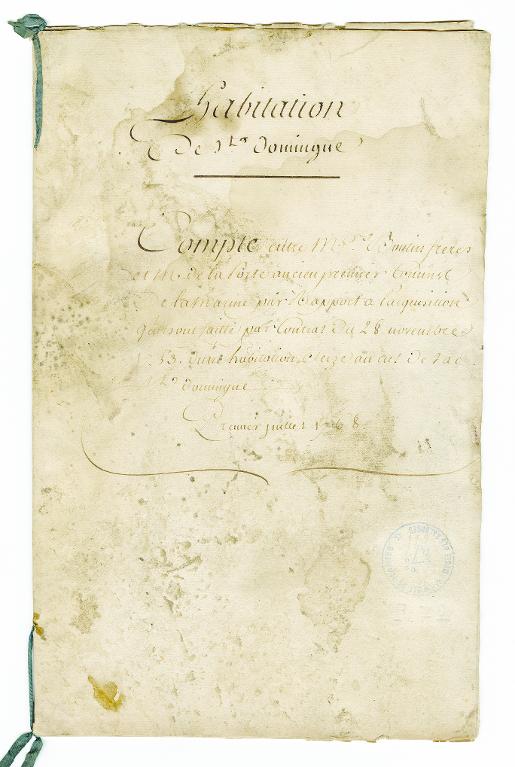 habitation
De St. Domingue
Compte entre Mrs. Boutin freres
et M. de la Porte ancien premier Commis
De la marine par Rapport a l'aquisition
quils ont faitte par Contrat du 28 novembre
1753. d'une habitation, size au cul de sac
St. Domingue
Premier juillet 1768